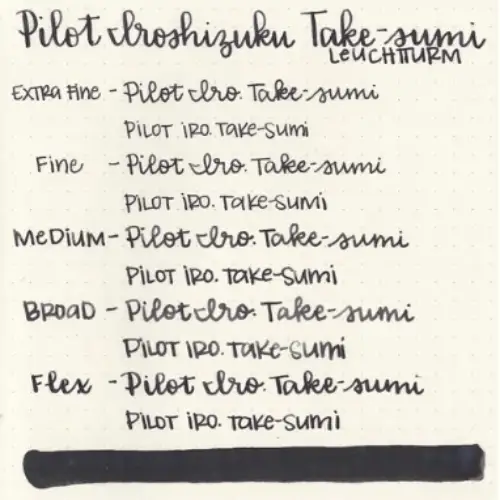 Pilot Iroshizuku Take-sumi
LEUCHTTURM
EXTRA FINE - Pilot Iro. Take-sumi
PILOT IRO. TAKE-SUMI
Fine - Pilot Iro. Take-sumi
PILOT IRO. TAKE-SUMI
MEDIUM - Pilot Iro. Take-sumi
PILOT IRO. TAKE-SUMI
BROAD - Pilot Iro. Take-sumi
PILOT IRO. TAKE-SUMI
Flex - Pilot Iro. Take-sumi
PILOT IRO. TAKE-SUMI